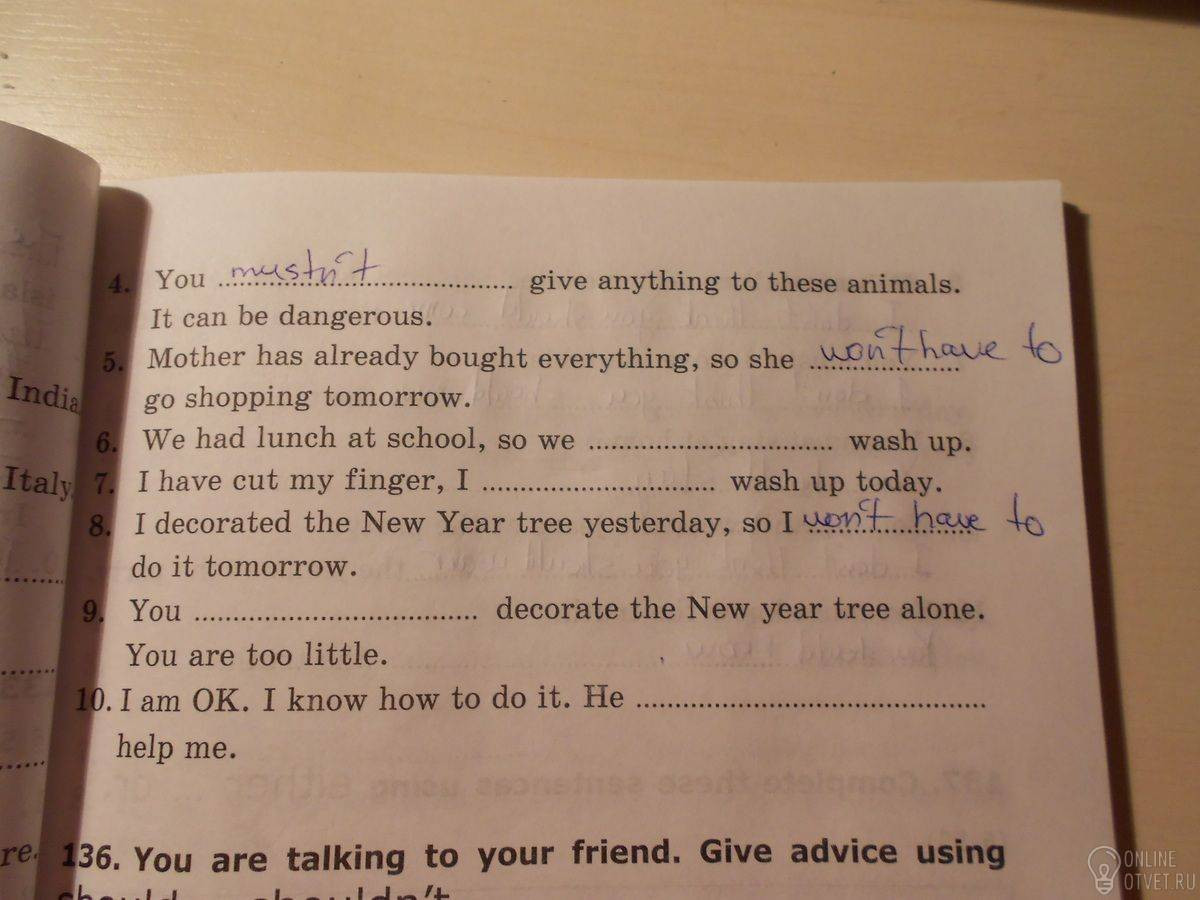 4. You mustn't give anything to these animals.
It can be dangerous.
5. Mother has already bought everything, so she won't have to
go shopping tomorrow.
6. We had lunch at school, so we ........................ wash up.
7. I have cut my finger, I ........................ wash up today.
8. I decorated the New Year tree yesterday, so I won't have to
do it tomorrow.
9. You ........................ decorate the New year tree alone.
You are too little.
10. I am OK. I know how to do it. He ........................
help me.
136. You are talking to your friend. Give advice using
should shouldn't
India
Italy
re.
ONLINE
OTVET.RU